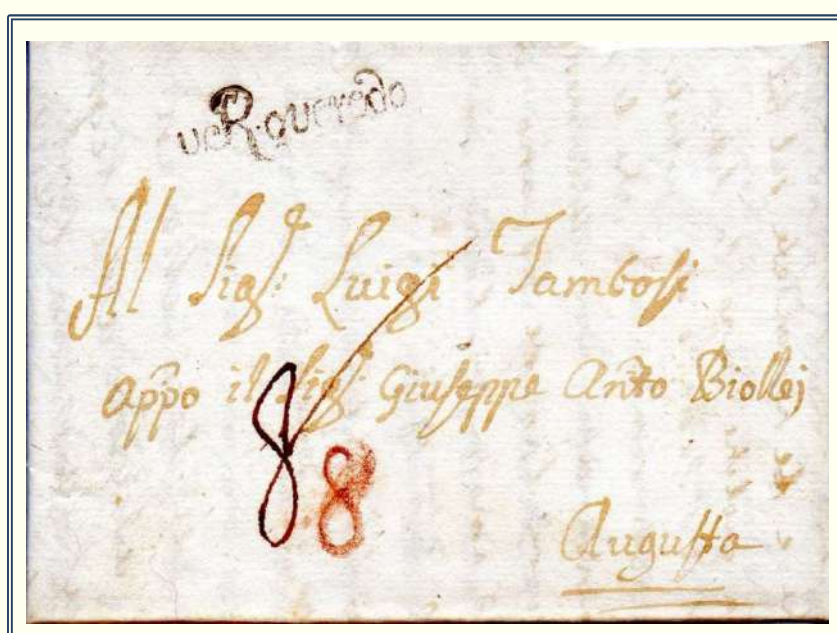 veRoveredo
Al Sigr. Luigi Tambosi
appo il Sigr. Giuseppe Anto Biolley
Augusta
8 8